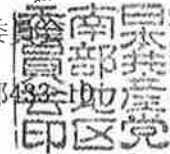 日本共産党
南部地区
委員会印
433-10